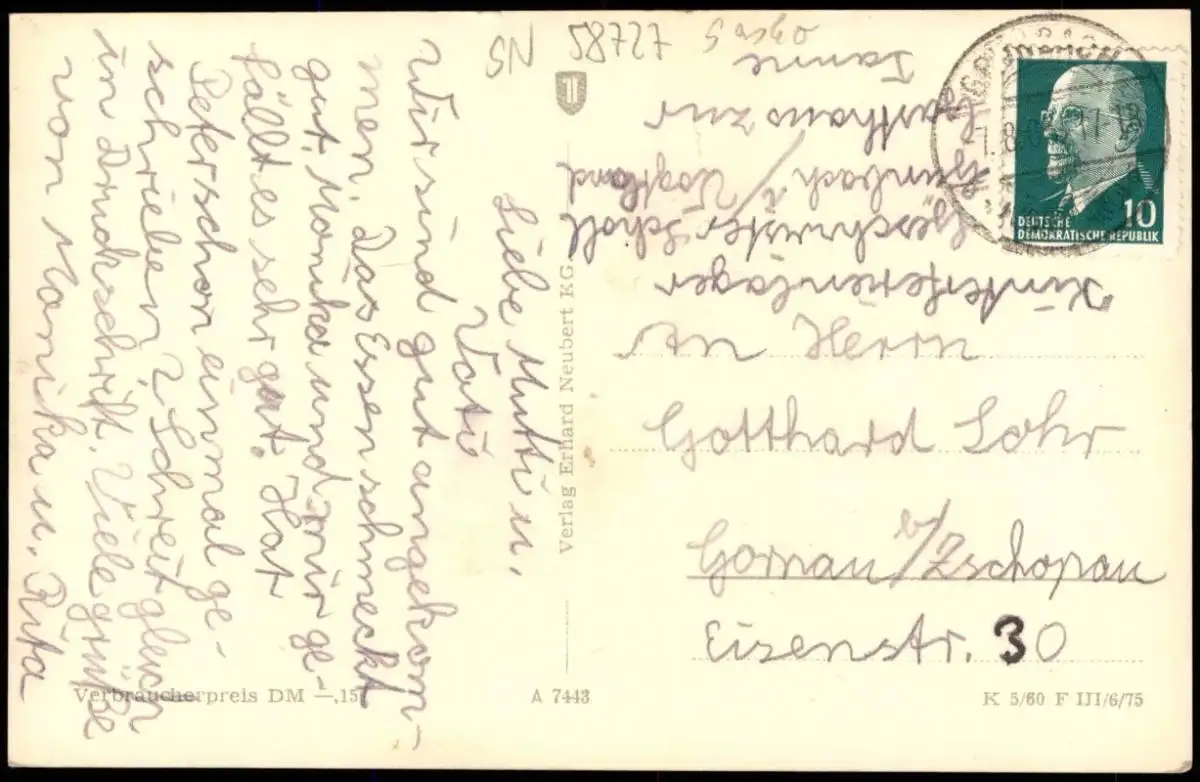 Liebe Mutti u.
Vati
Wir sind gut angekom-
men. Das Essen schmeckt
gut, Monika und mir ge-
fällt es sehr gut. Hat
Peter schon einmal ge-
schrieben? Schreit gleich
in Druckschrift. Viele grüße
von Monika u. Rita
Kinterferienlager
"Geschwister Scholl
/ Vogtland
Gasthaus zur
Tanne
NS 58727
DEUTSCHE
DEMOKRATISCHE REPUBLIK
10
An Herrn
Gotthard Lohr
Gornau b/Zschopau
Eisenstr. 30
Verlag Erhard Neubert KG.
Verbraucherpreis DM —,15
A 7443
K 5/60 F III/6/75